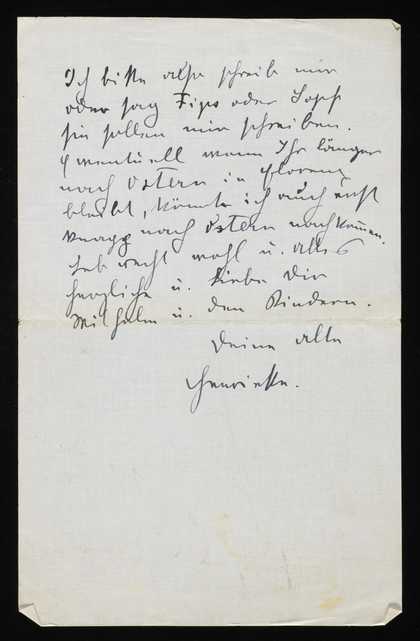 Ich bitte also schreib mir
oder sag Fips oder Soph
sie sollen mir schreiben.
Eventuell wenn Ihr länger
nach Ostern in Florenz
bleibt, könnte ich auch erst
knapp nach Ostern nachkommen.
Leb recht wohl u. alles
herzliche u. Liebe Dir
Wilhelm u. den Kindern.
Deine alte
Henriette.